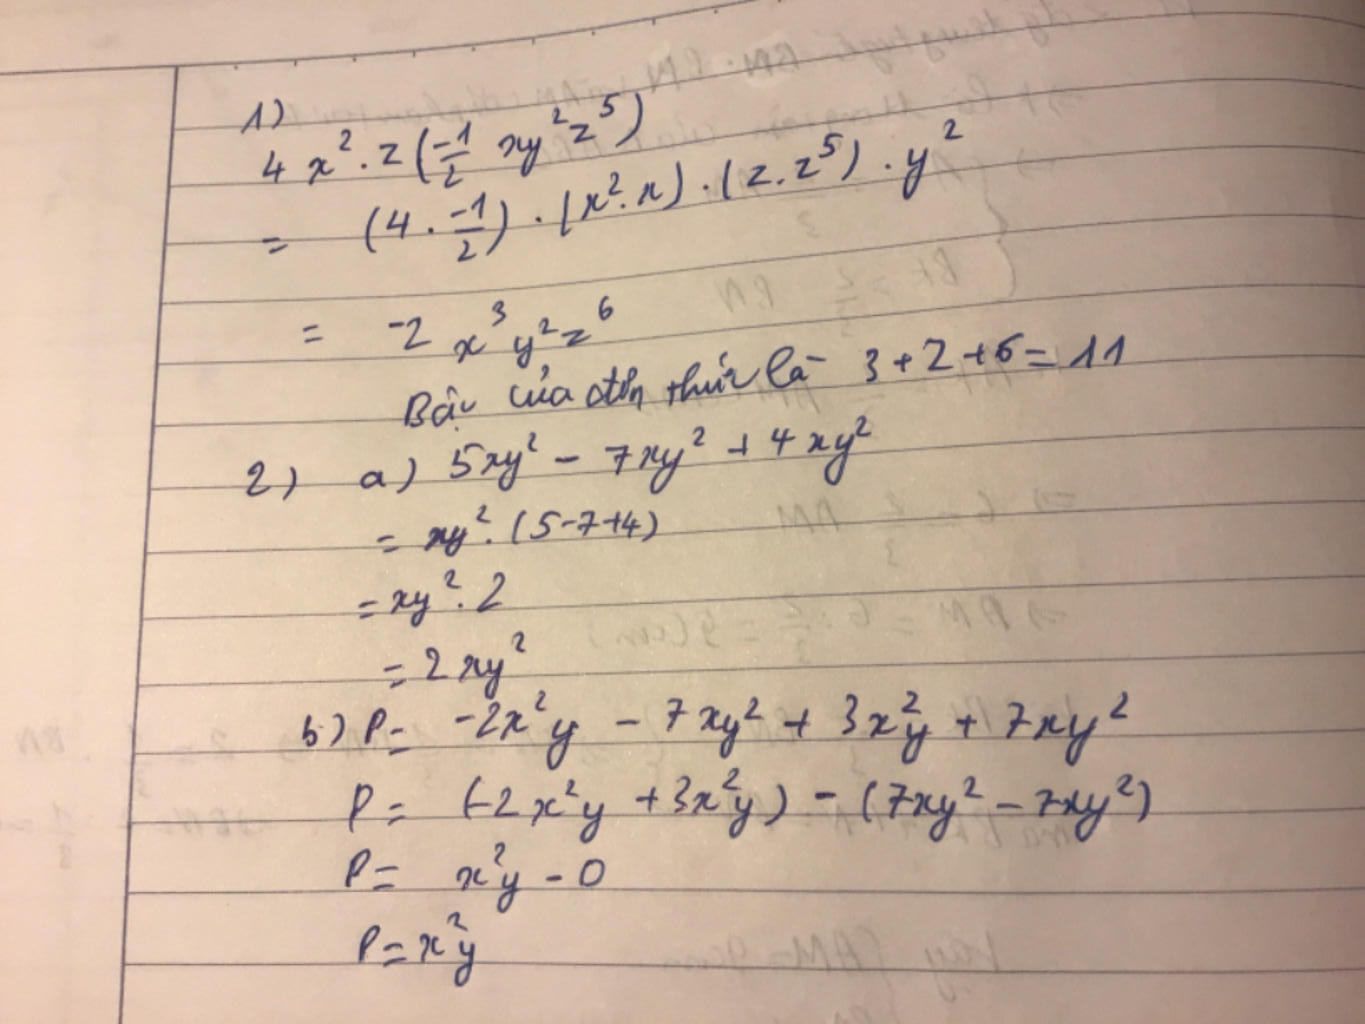 1)
4x².z(-1/2 xy²z⁵)
= (4.-1/2).(x².x).(z.z⁵).y²
= -2x³y²z⁶
Bậc của đơn thức là 3+2+6=11
2) a) 5xy² - 7xy² + 4xy²
= xy².(5-7+4)
= xy².2
= 2xy²
b) P= -2x²y - 7xy² + 3x²y + 7xy²
P= (-2x²y + 3x²y) - (7xy² - 7xy²)
P= x²y - 0
P= x²y